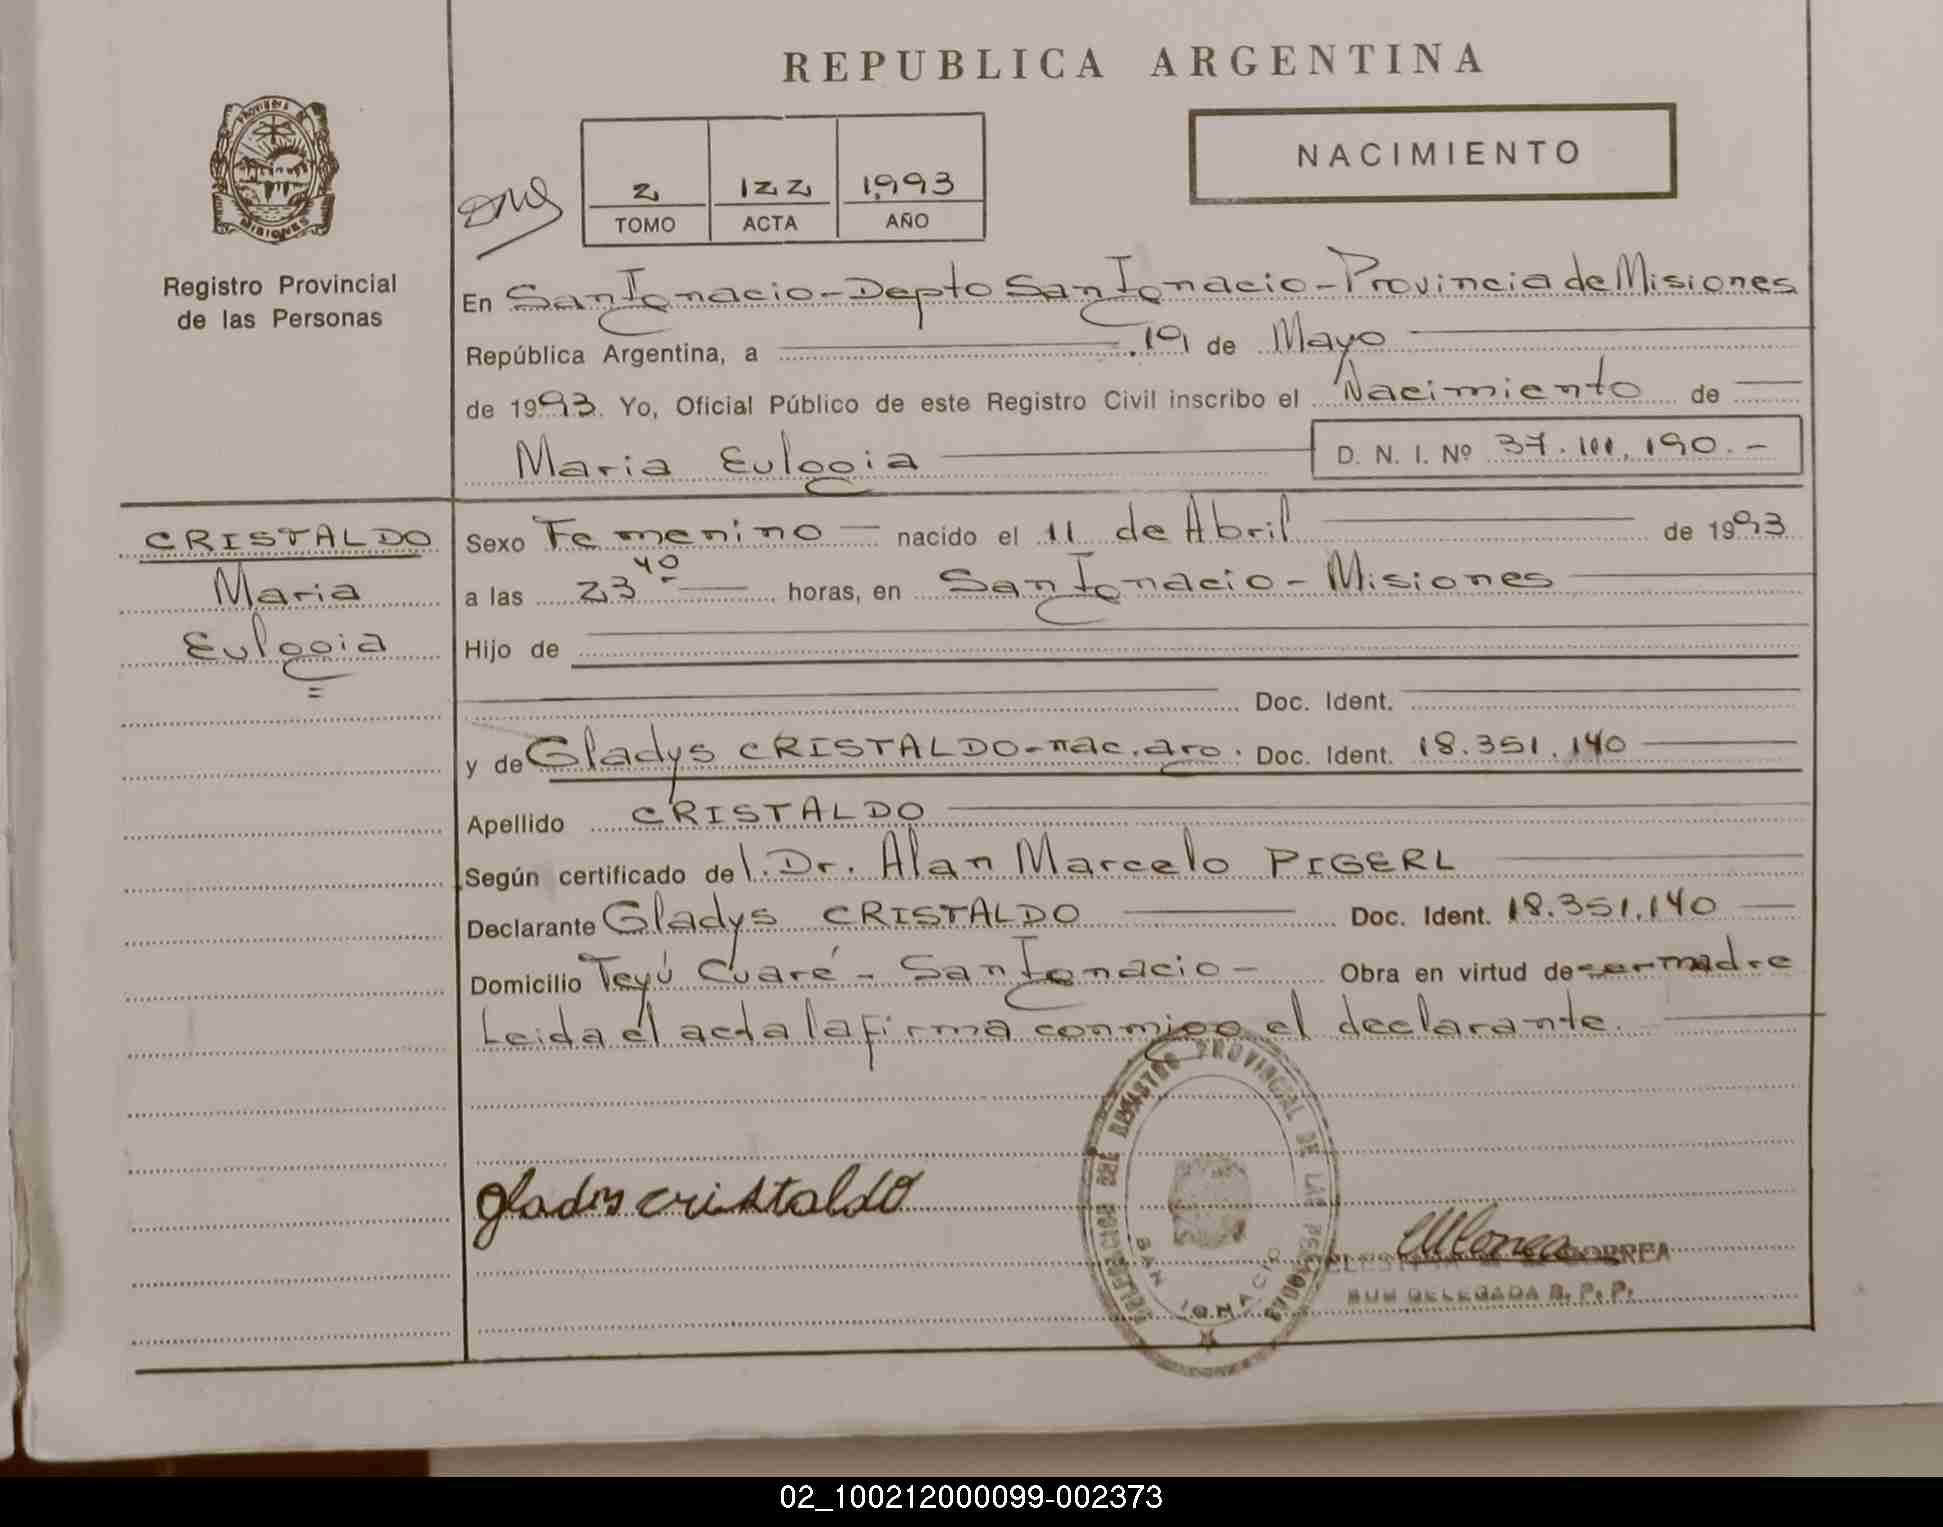 REPUBLICA ARGENTINA
PROVINCIA DE
MISIONES
Registro Provincial
de las Personas
2 122 1993
TOMO ACTA AÑO
NACIMIENTO
En San Ignacio - Depto San Ignacio - Provincia de Misiones
República Argentina, a 19 de Mayo
de 1993. Yo, Oficial Público de este Registro Civil inscribo el Nacimiento de
Maria Eulogia D. N. I. Nº 37.111.190.-
CRISTALDO
Maria
Eulogia
Sexo Femenino nacido el 11 de Abril de 1993
a las 23 40 horas, en San Ignacio - Misiones
Hijo de
Doc. Ident.
y de Gladys CRISTALDO - nac. arg. Doc. Ident. 18.351.140
Apellido CRISTALDO
Según certificado del Dr. Alan Marcelo PIGERL
Declarante Gladys CRISTALDO Doc. Ident. 18.351.140
Domicilio Teyú Cuaré - San Ignacio - Obra en virtud de ser madre
Leida el acta la firma conmigo el declarante.
gladys cristaldo
REGISTRO PROVINCIAL DE LAS PERSONAS
SAN IGNACIO
CORREA
SUB DELEGADA R. P. P.
02_100212000099-002373